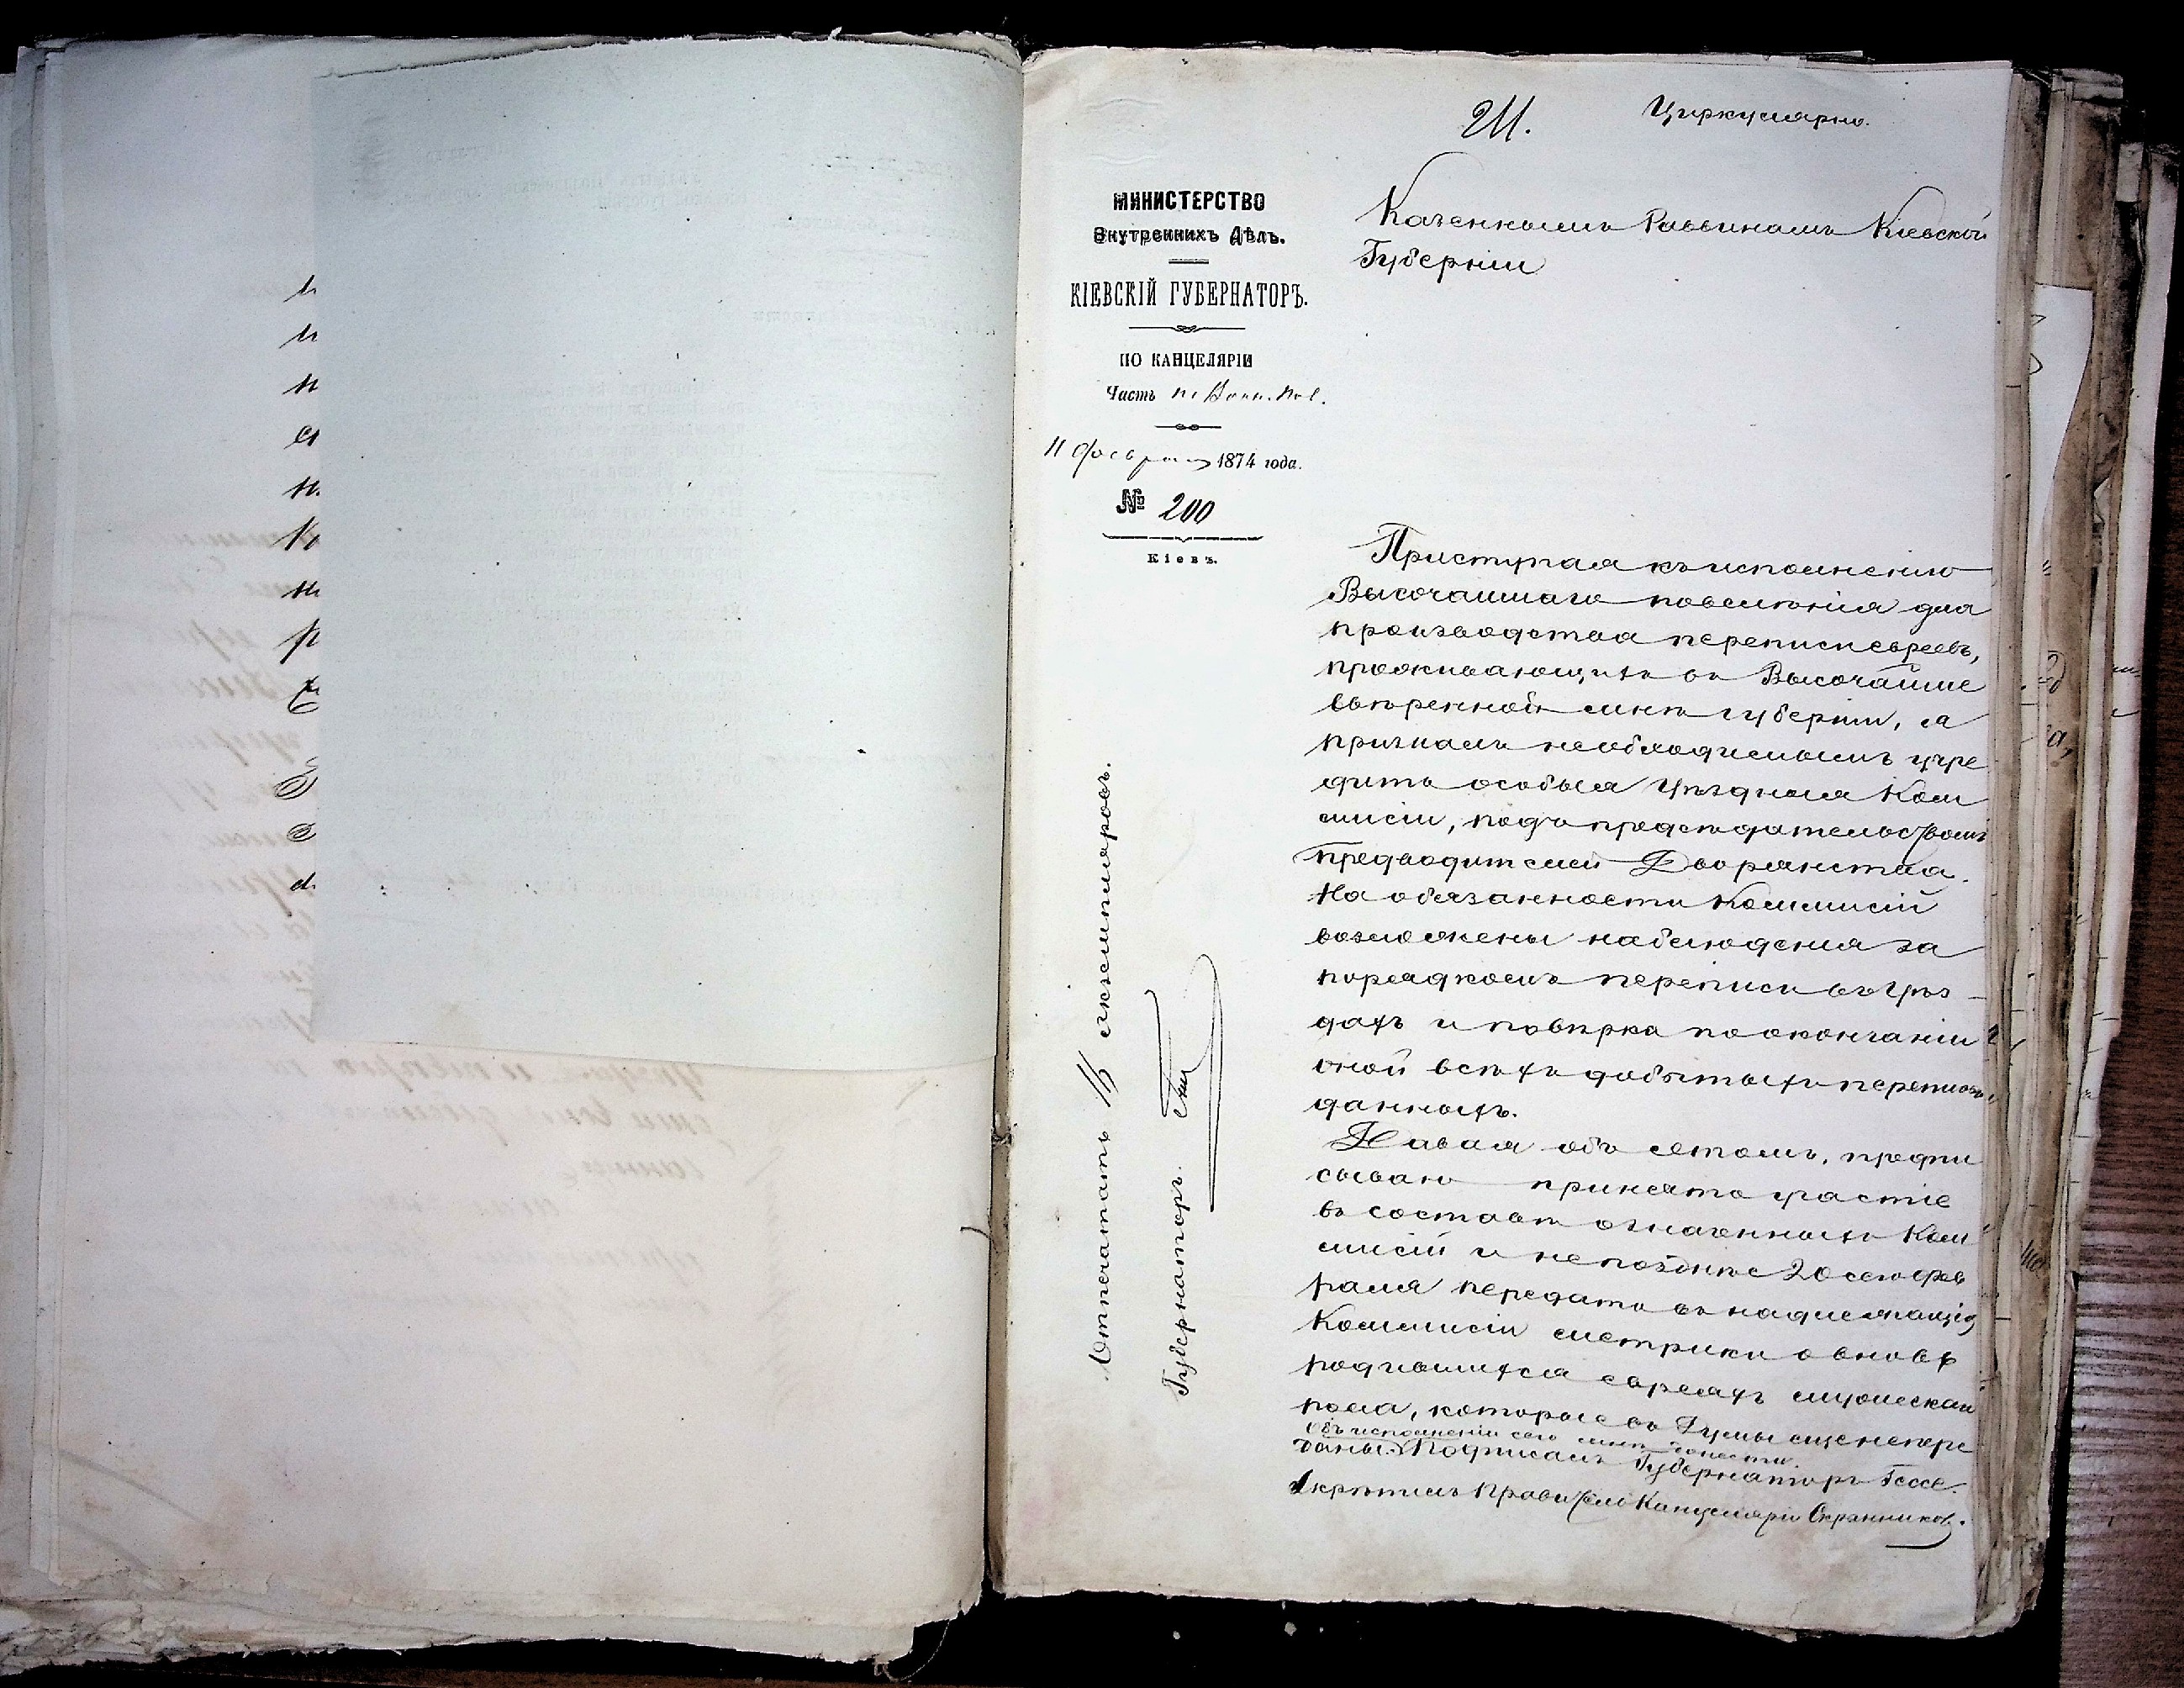 211.
Циркулярно.
МИНИСТЕРСТВО
Внутреннихъ Дѣлъ.
КІЕВСКІЙ ГУБЕРНАТОРЪ.
ПО КАНЦЕЛЯРІИ
Часть по Воин. Пов.
11 февраля 1874 года.
№ 200
Кіевъ.
Казеннымъ Раввинамъ Кіевской
Губерніи
Приступая къ исполненію
Высочайшаго повелѣнія для
производства переписи евреевъ,
проживающихъ въ Высочайше
ввѣренной мнѣ губерніи, я
призналъ необходимымъ учре
дить особыя Уѣздныя Ком
мисіи, подъ предсѣдательствомъ
Предводителей Дворянства.
На обязанности Коммисій
возложены наблюденія за
порядкомъ переписи въ уѣз-
дахъ и повѣрка по окончаніи
оной всѣхъ добытыхъ переписью
данныхъ.
Давая объ этомъ, предпи
сываю принять участіе
въ составѣ означенныхъ Ком
мисій и не позднѣе 20 сего фев
раля передать въ надлежащія
Коммисіи метрики о вновь
родившихся евреяхъ мужескаго
пола, которые въ Думы еще непере
даны. Объ исполненіи сего мнѣ донести.
Подписалъ Губернаторъ Гессе.
Скрѣпилъ Правитель Канцеляріи Окранниковъ.
Отпечатать 16 экземпляровъ.
Губернаторъ